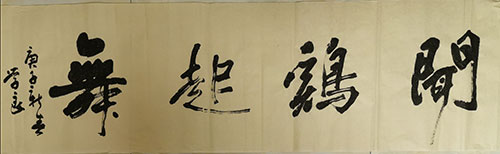 聞鷄起舞
庚子新春
学良